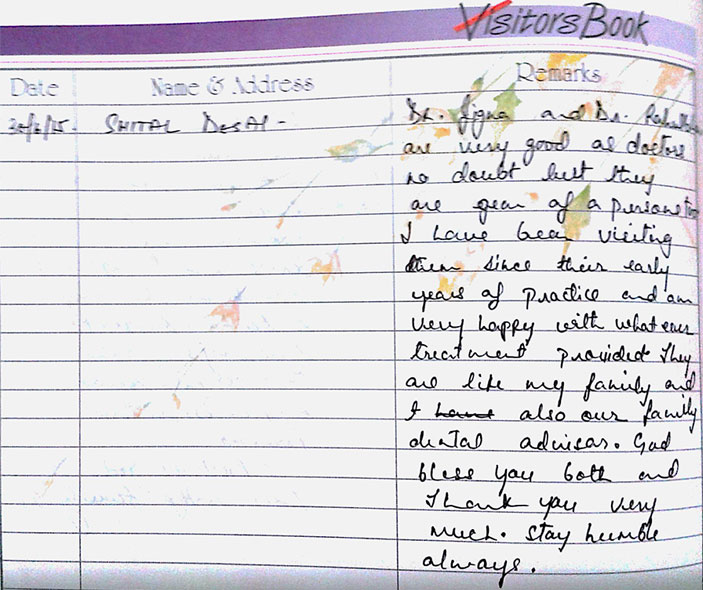 Visitors Book
Date Name & Address Remarks
SHITAL DESAI - Dr. Jigna and Dr.
are very good as doctors
no doubt but they
are gem of a person too
I have been visiting
them since their early
years of practice and am
very happy with whatever
treatment provided They
are like my family and
I have also our family
dental advisor. God
bless you both and
Thank you very
much. stay humble
always.